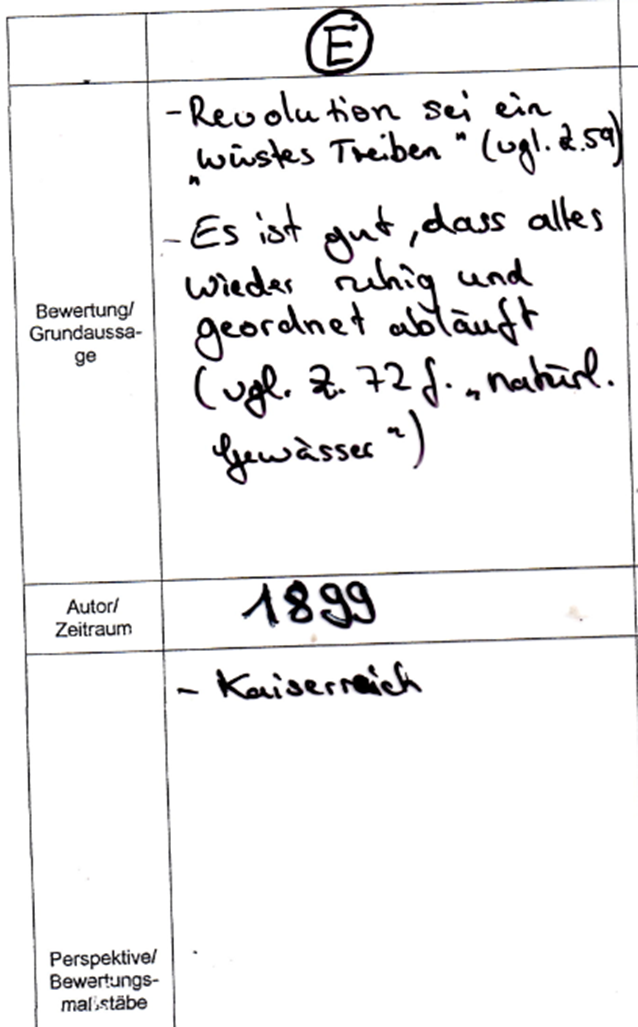 E
- Revolution sei ein
„wüstes Treiben" (vgl. Z. 59)
- Es ist gut, dass alles
wieder ruhig und
geordnet abläuft
(vgl. Z. 72 f. „natürl.
Gewässer")
Bewertung/
Grundaussa-
ge
Autor/
Zeitraum
1899
- Kaiserreich
Perspektive/
Bewertungs-
maßstäbe